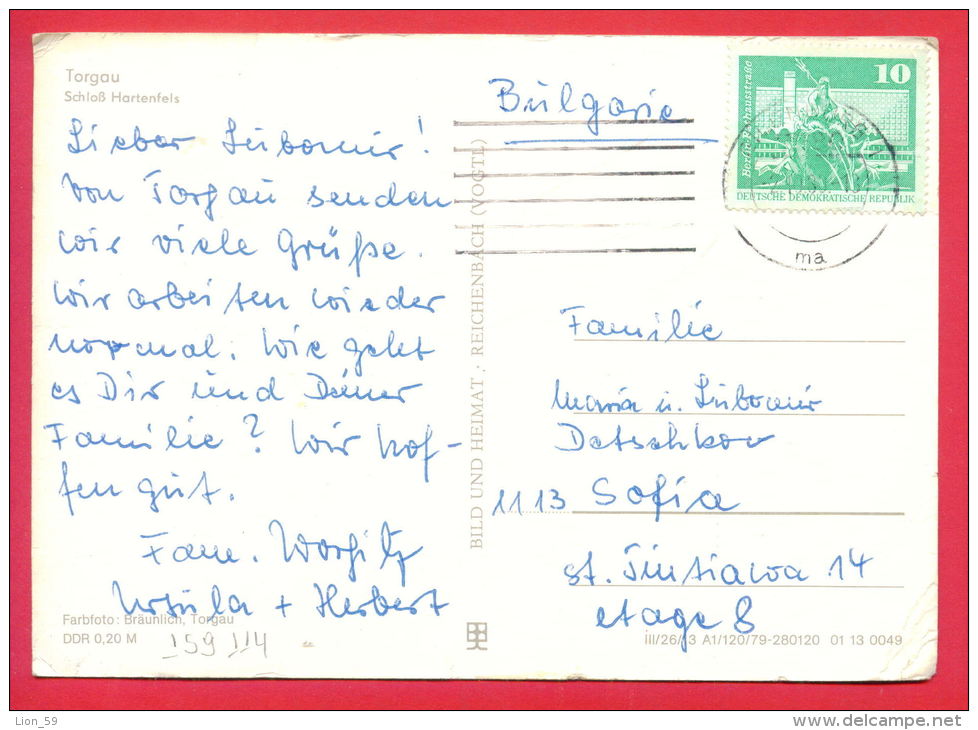 Torgau
Schloß Hartenfels
Lieber Lubomir!
Von Torgau senden
wir viele Grüße.
Wir arbeiten wieder
normal. Wie geht
es Dir und Deiner
Familie? Wir hof-
fen gut.
Fam. Worfitz
Ursula + Herbert
Farbfoto: Bräunlich, Torgau
DDR 0,20 M
159 114
BILD UND HEIMAT . REICHENBACH (VOGTL)
Bulgarie
10
Berlin Rathausstraße
DEUTSCHE DEMOKRATISCHE REPUBLIK
ma
Familie
Maria u. Lubomir
Detschkov
1113 Sofia
st. Tintiawa 14
etage 8
A1/120/79-280120 01 13 0049
Lion_59
www.delcampe.net